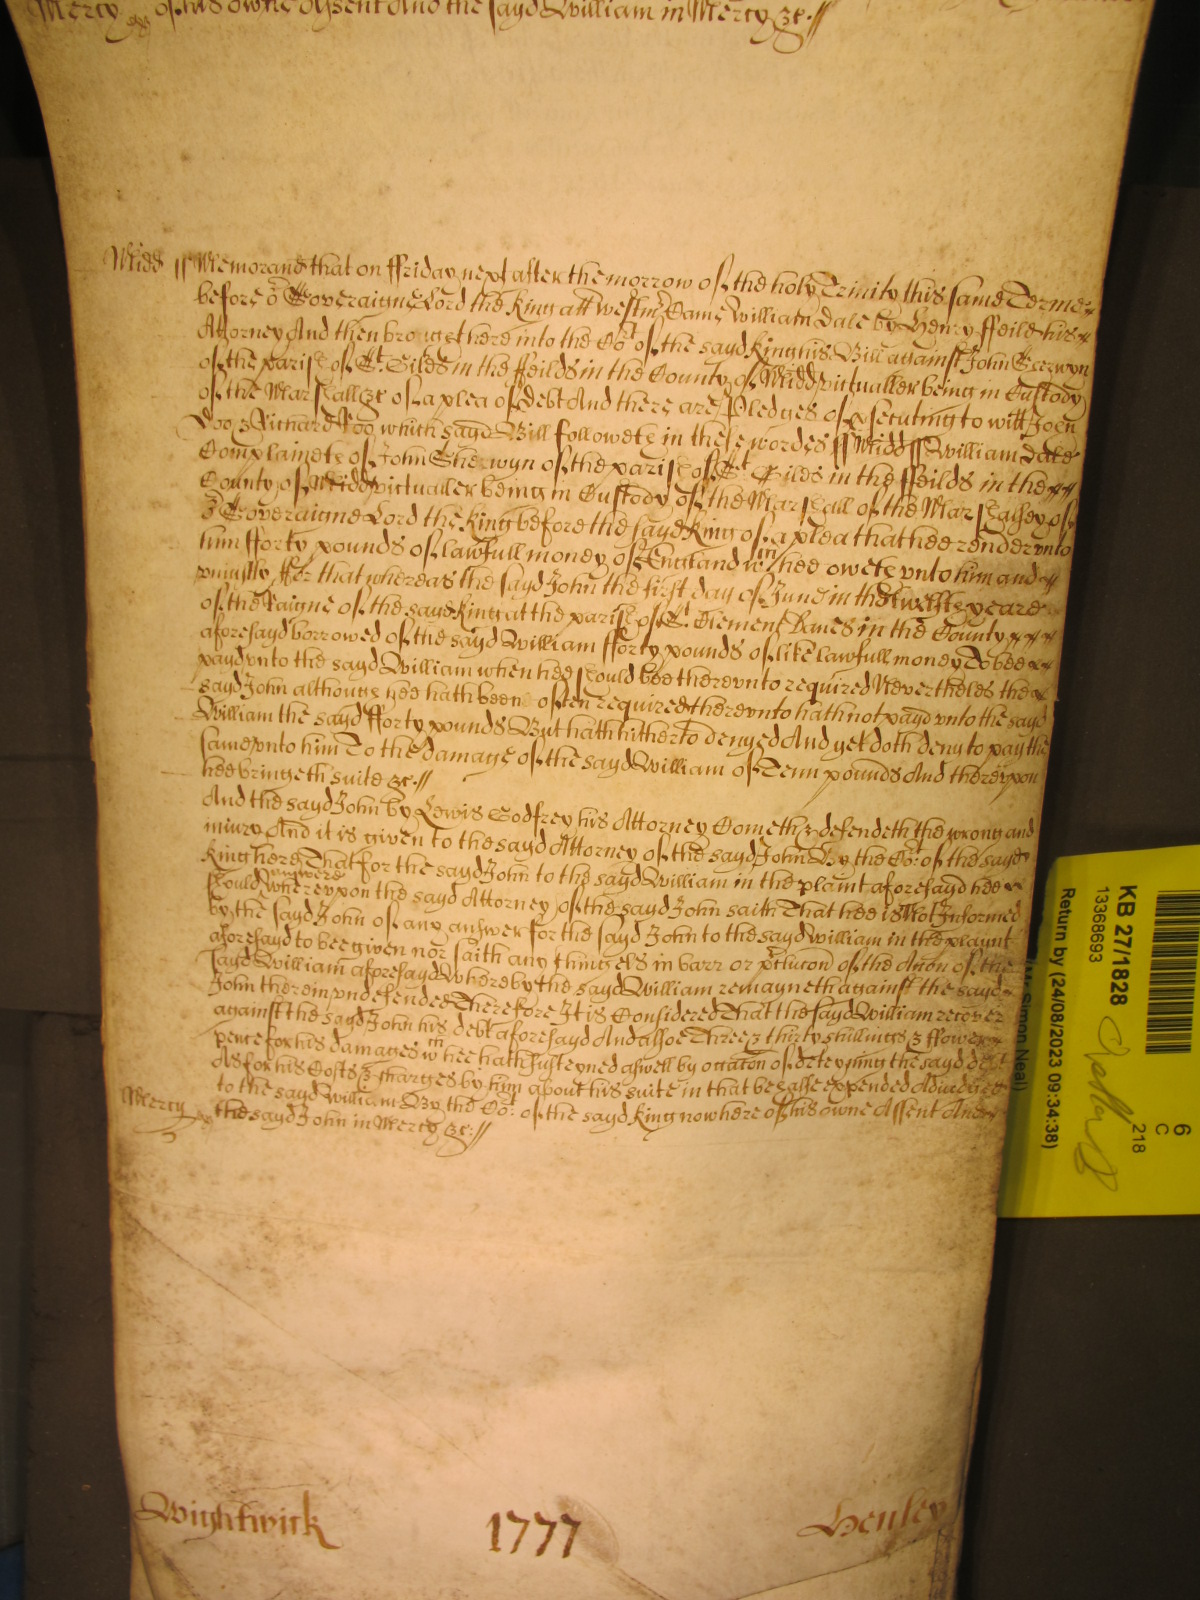 Mercy of his owne Assent And the sayd William in Mercy &c.//
Midd ss Memorand that on ffriday next after the morrow of the holy Trinity this same Terme
before or Soveraigne Lord the King att Westmr Came William Dale by Henry ffeild his
Attorney And then brought here into the Cort of the sayd King his Bill against John Sherwyn
of the parish of St. Giles in the ffeilds in the County of Midd victualler being in Custody
of the Marshall &c of a plea of debt And there are Pledges of psecuting to witt John
Doo & Richard Roo which sayd Bill followeth in these wordes ss Midd ss William Dale
Complaineth of John Sherwyn of the parish of St. Giles in the ffeilds in the
County of Midd victualler being in Custody of the Marshall of the Marshalsey of
Soveraigne Lord the King before the sayd King of a plea that hee render unto
him fforty pounds of lawfull money of England wch hee oweth unto him and
uniustly ffor that whereas the sayd John the first day of June in the twelfth yeare
of the Raigne of the sayd King at the parish of St. Clement Danes in the County
aforesayd borrowed of the sayd William fforty pounds of like lawfull money To bee
payd unto the sayd William when hee should bee thereunto required Nevertheles the
sayd John although hee hath been often required thereunto hath not payd unto the sayd
William the sayd fforty pounds But hath hitherto denyed And yet doth deny to pay the
same unto him To the damage of the sayd William of Tenn pounds And thereupon
hee bringeth suite &c.//
And the sayd John by Lewis Godfrey his Attorney Cometh & defendeth the wrong and
iniury And it is given to the sayd Attorney of the sayd John By the Cort of the sayd
King here That for the sayd John to the sayd William in the plaint aforesayd hee
should answere whereupon the sayd Attorney of the sayd John saith That hee is Not Informed
by the sayd John of any answer for the sayd John to the sayd William in the playnt
aforesayd to bee given nor saith any thing els in barr or pclucon of the Accon of the
sayd William aforesayd Whereby the sayd William remayneth against the sayd
John therein undefended Therefore It is Considered That the sayd William recover
against the sayd John his debt aforesayd And alsoe Three & thirty shillings & ffower
pence for his damages wch hee hath susteyned aswell by occasion of deteyning the sayd debt
As for his Costs & charges by him about his suite in that behalfe expended Adiudged
to the sayd William By the Cort of the sayd King now here of his owne Assent And
Mercy the sayd John in Mercy &c.//
Wightwick 1777 Henley
KB 27/1828
13368693
Return by (24/08/2023 09:34:38)
Mr Simon Neal)
6
C
218